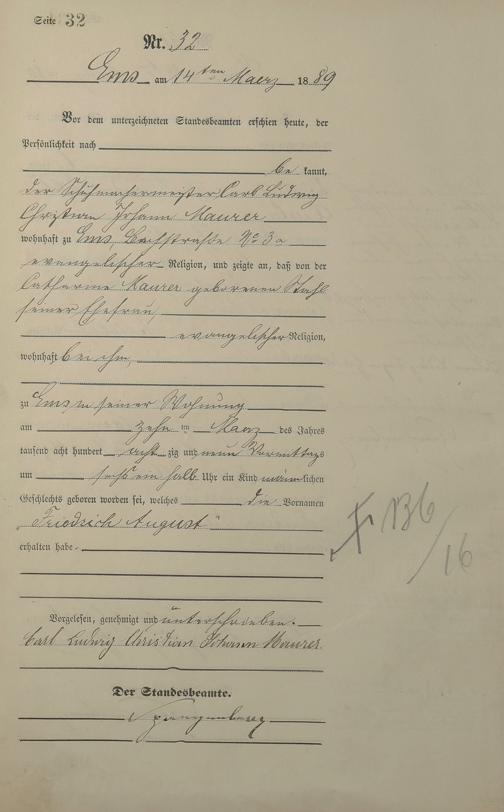 Seite 32
Nr. 32
Ems am 14ten Maerz 1889
Vor dem unterzeichneten Standesbeamten erschien heute, der
Persönlichkeit nach
be kannt,
der Schuhmachermeister Carl Ludwig
Christian Johann Maurer
wohnhaft zu Ems, Bachstraße No 3a
evangelischer Religion, und zeigte an, daß von der
Catharine Maurer geborenen Stahl
seiner Ehefrau,
evangelischer Religion,
wohnhaft bei ihm,
zu Ems in seiner Wohnung
am zehn ten Maerz des Jahres
tausend acht hundert acht zig und neun Vormittags
um sechs ein halb Uhr ein Kind männlichen
Geschlechts geboren worden sei, welches die Vornamen
"Friedrich August"
erhalten habe.
B6
/16
Vorgelesen, genehmigt und unterschrieben.
Carl Ludwig Christian Johann Maurer
Der Standesbeamte.
Spangenberg